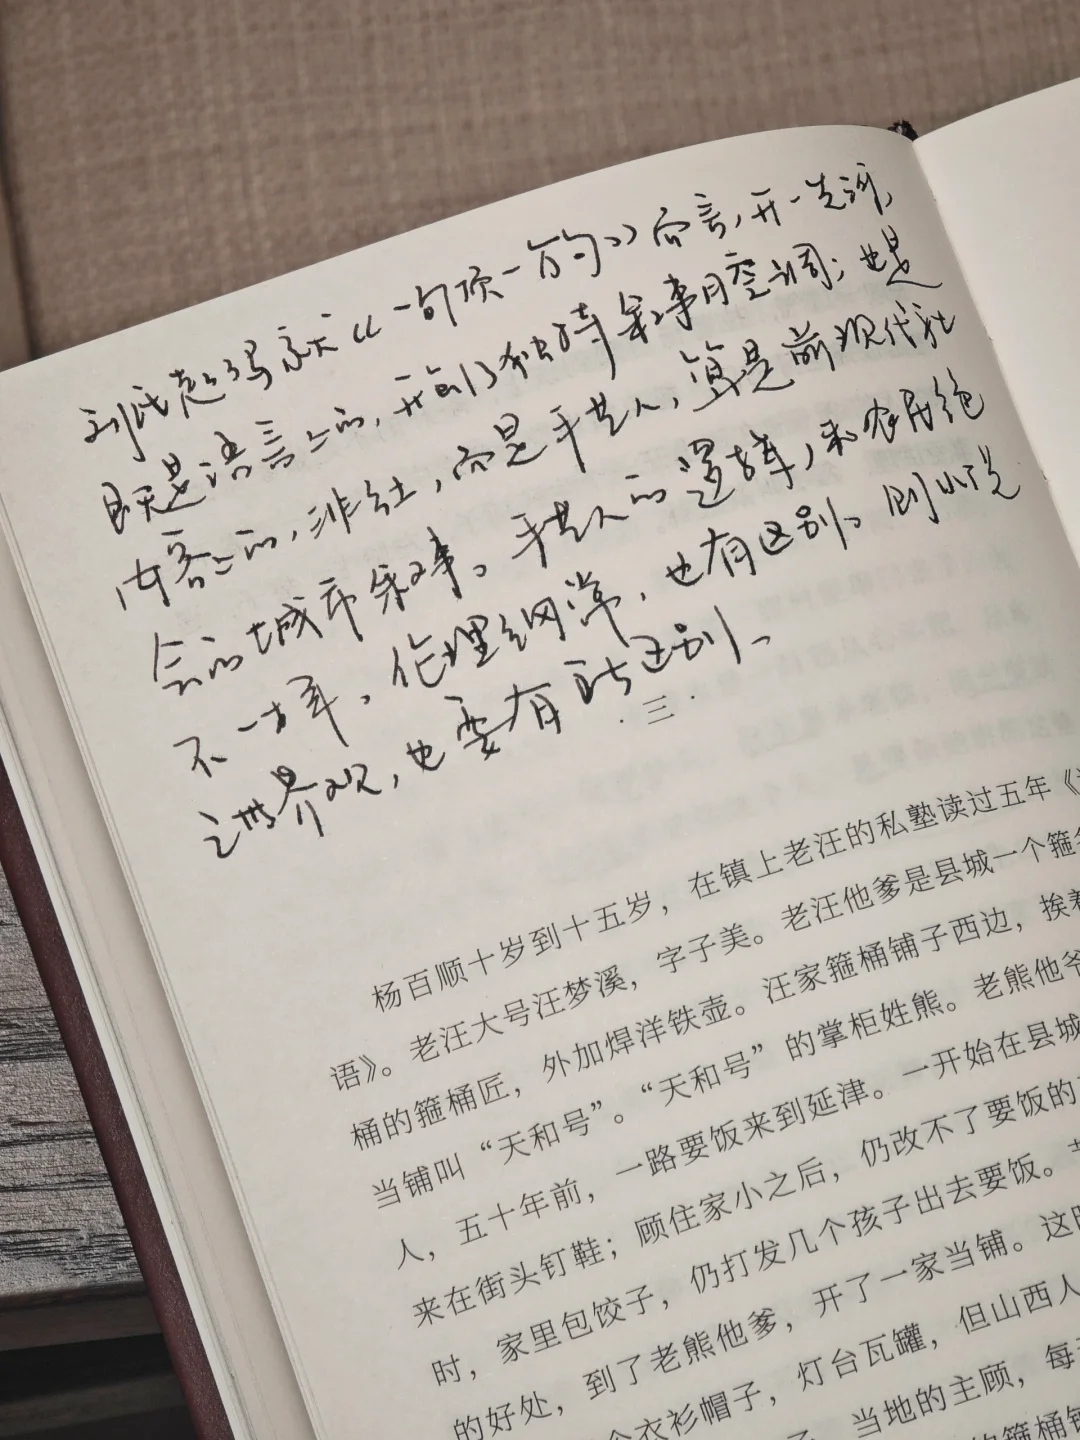 刘氏起了写永夫《一句顶一万句》而言，开一先河，
既是语言上的，开创了独特叙事腔调；也是
内容上的，非乡土，而是手艺人，算是前现代社
会的城市叙事。手艺人的逻辑，和农民绝
不一样，伦理纲常，也有区别。则小说
之世界观，也要有所区别。
·三·
杨百顺十岁到十五岁，在镇上老汪的私塾读过五年《
语》。老汪大号汪梦溪，字子美。老汪他爹是县城一个箍
桶的箍桶匠，外加焊洋铁壶。汪家箍桶铺子西边，挨着
当铺叫“天和号”。“天和号”的掌柜姓熊。老熊他爷
人，五十年前，一路要饭来到延津。一开始在县城
来在街头钉鞋；顾住家小之后，仍改不了要饭的
时，家里包饺子，仍打发几个孩子出去要饭。
的好处，到了老熊他爹，开了一家当铺。这
个衣衫帽子，灯台瓦罐，但山西人
当地的主顾，每
的箍桶铺